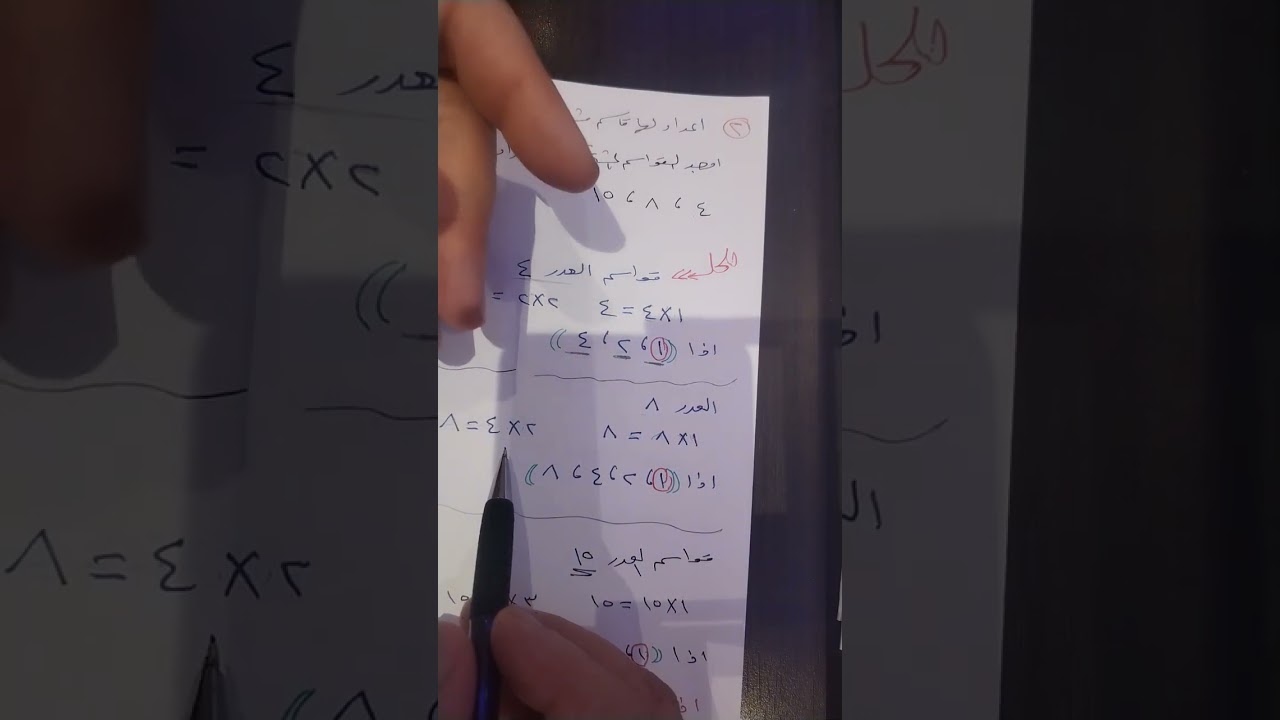 ٢ اعداد لها قاسم
اوجد القواسم
٤ ، ٨ ، ١٥
الحل قواسم العدد ٤
١×٤ = ٤ ٢×٢ =
اذا ((١ ، ٢ ، ٤))
العدد ٨
١×٨ = ٨ ٢×٤=٨
اذا ((١ ، ٢ ، ٤ ، ٨))
قواسم العدد ١٥
١×١٥ = ١٥ ٣× ١٥
اذا ((١ ،